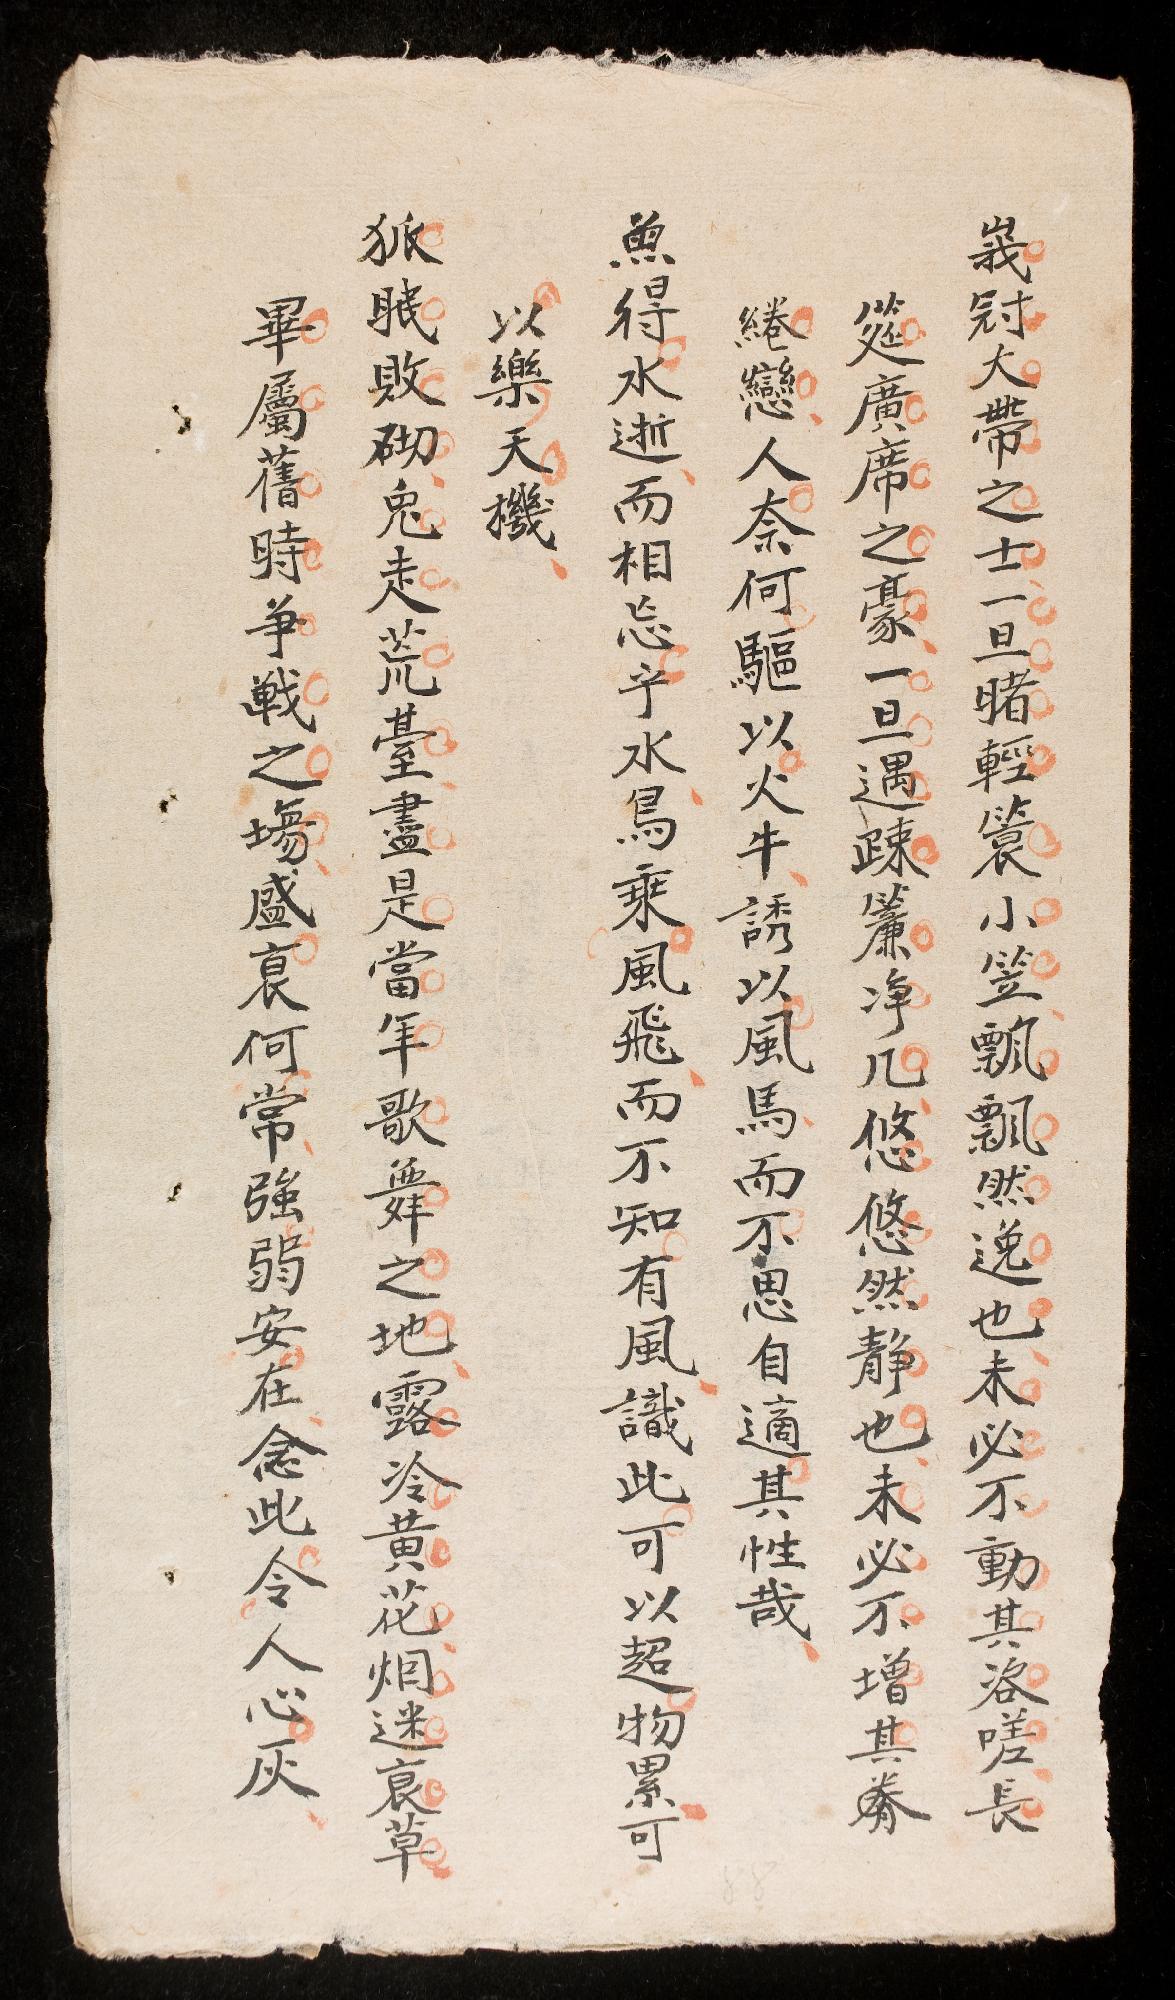 峩冠大帶之士一旦睹輕簑小笠飄飄然逸也未必不動其洛嗟長
筵廣席之豪一旦遇疎簾净几悠悠然靜也未必不增其
綣戀人奈何驅以火牛誘以風馬而不思自適其性哉
魚得水逝而相忘乎水鳥乘風飛而不知有風識此可以超物累可
以樂天機
狐眠敗砌兔走荒臺盡是當年歌舞之地露冷黄花烟迷衰草
畢屬舊時爭戰之場盛衰何常強弱安在念此令人心灰
88